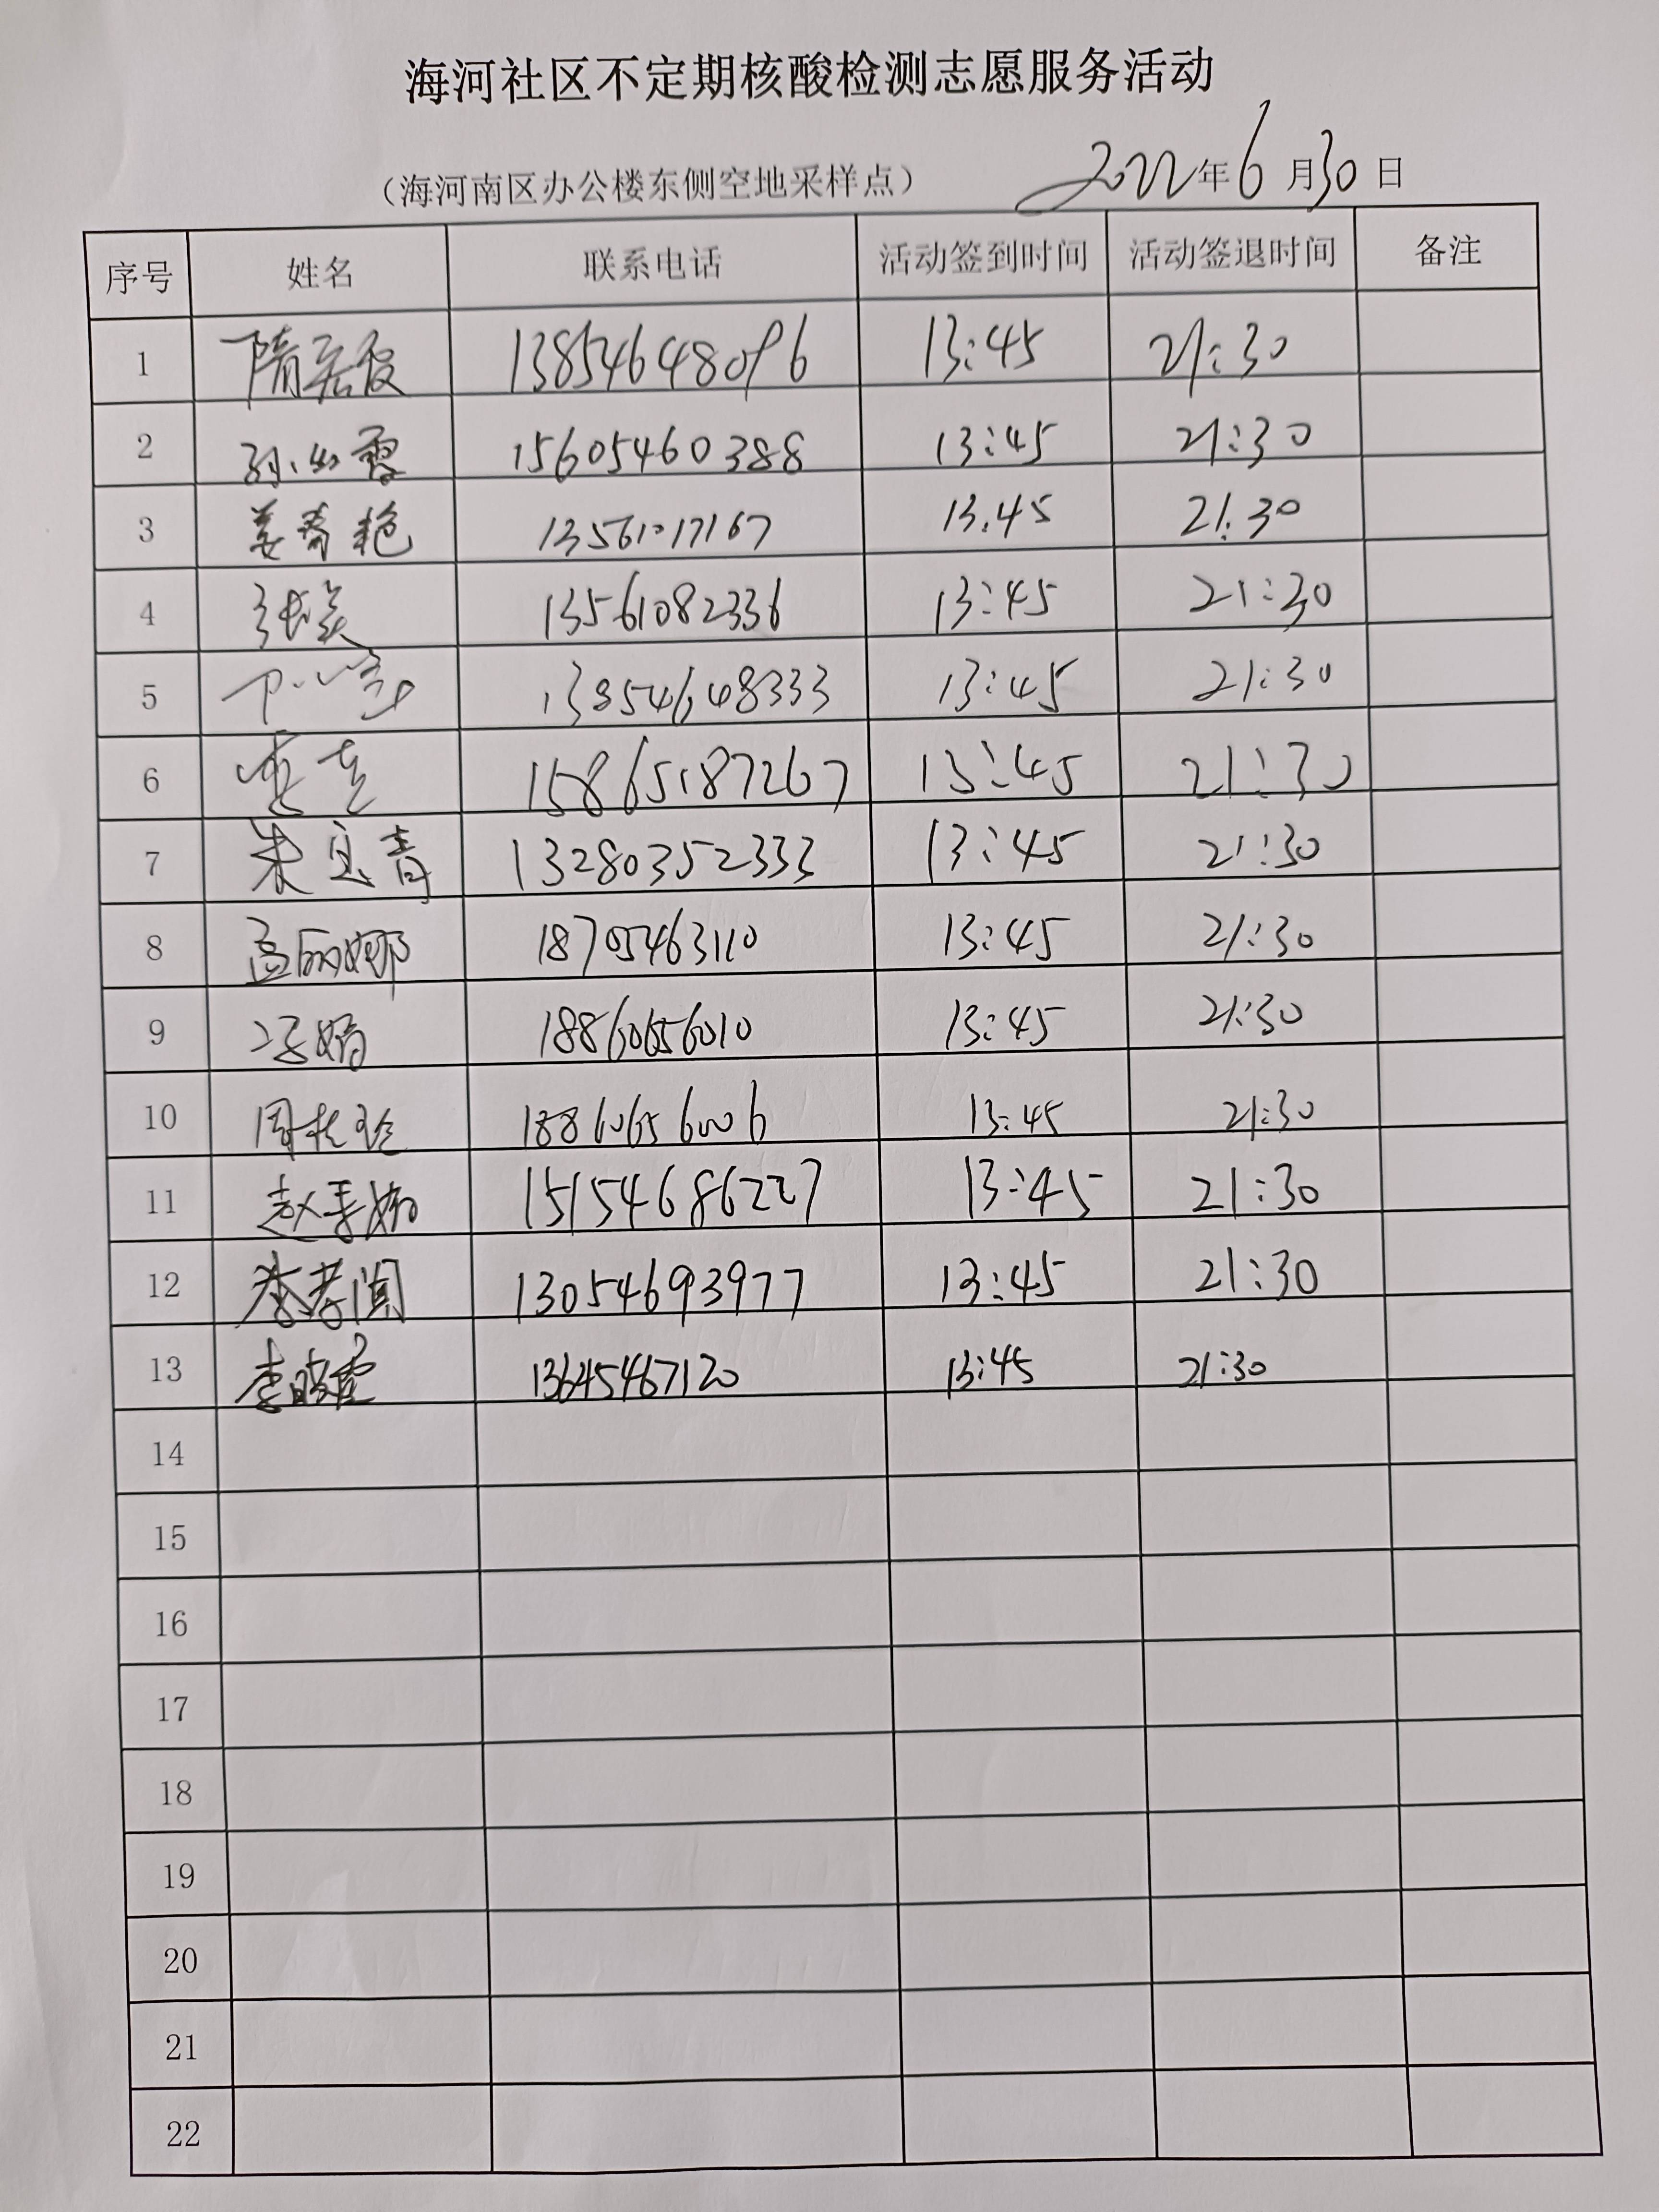 海河社区不定期核酸检测志愿服务活动
（海河南区办公楼东侧空地采样点） 2022年6月30日
序号 姓名 联系电话 活动签到时间 活动签退时间 备注
1 13854648096 13:45 21:30
2 15605460388 13:45 21:30
3 姜寿艳 13561017167 13:45 21:30
4 13561082336 13:45 21:30
5 13854648333 13:45 21:30
6 15865187267 13:45 21:30
7 朱宜青 13280352333 13:45 21:30
8 孟丽娜 18705463110 13:45 21:30
9 18860656010 13:45 21:30
10 18860656006 13:45 21:30
11 15154686227 13:45 21:30
12 13054693977 13:45 21:30
13 李晓霞 13645467120 13:45 21:30
14
15
16
17
18
19
20
21
22